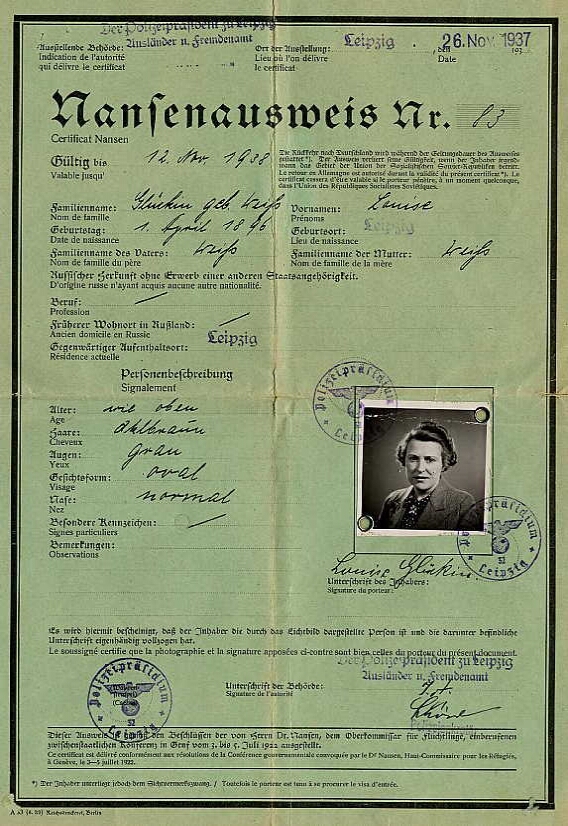 Der Polizeipräsident zu Leipzig
Ausländer u. Fremdenamt
Ausstellende Behörde:
Indication de l'autorité
qui délivre le certificat
Ort der Ausstellung: Leipzig, den 26. Nov. 1937
Lieu où l'on délivre Date
le certificat
Nansenausweis Nr. 83
Certificat Nansen
Gültig bis 12. Nov. 1938
Valable jusqu'
Die Rückkehr nach Deutschland wird während der Geltungsdauer des Ausweises
gestattet*). Der Ausweis verliert seine Gültigkeit, wenn der Inhaber irgend-
wann das Gebiet der Union der Sozialistischen Sowjet-Republiken betritt.
Le retour en Allemagne est autorisé durant la validité du présent certificat*). Le
certificat cessera d'être valable si le porteur pénètre, à un moment quelconque,
dans l'Union des Républiques Socialistes Soviétiques.
Familienname: geb. Weiß Vornamen: Louise
Nom de famille Prénoms
Geburtstag: 1. April 1896 Geburtsort: Leipzig
Date de naissance Lieu de naissance
Familienname des Vaters: Weiß Familienname der Mutter: Weiß
Nom de famille du père Nom de famille de la mère
Russischer Herkunft ohne Erwerb einer anderen Staatsangehörigkeit.
D'origine russe n'ayant acquis aucune autre nationalité.
Beruf: /
Profession
Früherer Wohnort in Rußland: /
Ancien domicile en Russie
Gegenwärtiger Aufenthaltsort: Leipzig
Résidence actuelle
Personenbeschreibung
Signalement
Alter: wie oben
Age
Haare:
Cheveux
Augen: grau
Yeux
Gesichtsform: oval
Visage
Nase: normal
Nez
Besondere Kennzeichen: /
Signes particuliers
Bemerkungen:
Observations
Polizeipräsidium
Leipzig
Polizeipräsidium
Leipzig
52
Louise
Unterschrift des Inhabers:
Signature du porteur:
Es wird hiermit bescheinigt, daß der Inhaber die durch das Lichtbild dargestellte Person ist und die darunter befindliche
Unterschrift eigenhändig vollzogen hat.
Le soussigné certifie que la photographie et la signature apposées ci-contre sont bien celles du porteur du présent document.
Der Polizeipräsident zu Leipzig
Ausländer u. Fremdenamt
Polizeipräsidium
Leipzig
52
Unterschrift der Behörde:
Signature de l'autorité
Dieser Ausweis ist gemäß den Beschlüssen der von Herrn Dr. Nansen, dem Oberkommissar für Flüchtlinge, einberufenen
zwischenstaatlichen Konferenz in Genf vom 3. bis 5. Juli 1922 ausgestellt.
Ce certificat est délivré conformément aux résolutions de la Conférence gouvernementale convoquée par le Dr Nansen, Haut-Commissaire pour les Réfugiés,
à Genève, le 3—5 juillet 1922.
*) Der Inhaber unterliegt jedoch dem Sichtvermerkszwang. / Toutefois le porteur est tenu à se procurer le visa d'entrée.
Reichsdruckerei, Berlin